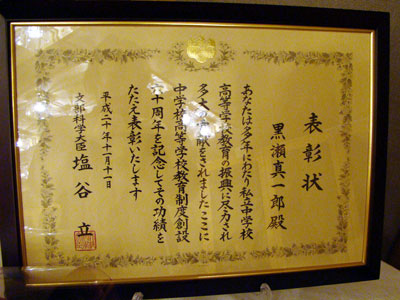 表彰状
黒瀬真一郎殿
あなたは多年にわたり私立中学校
高等学校教育の振興に尽力され
多大の貢献をされましたここに
中学校高等学校教育制度創設
六十周年を記念してその功績を
たたえ表彰いたします
平成二十年十一月十一日
文部科学大臣 塩谷 立